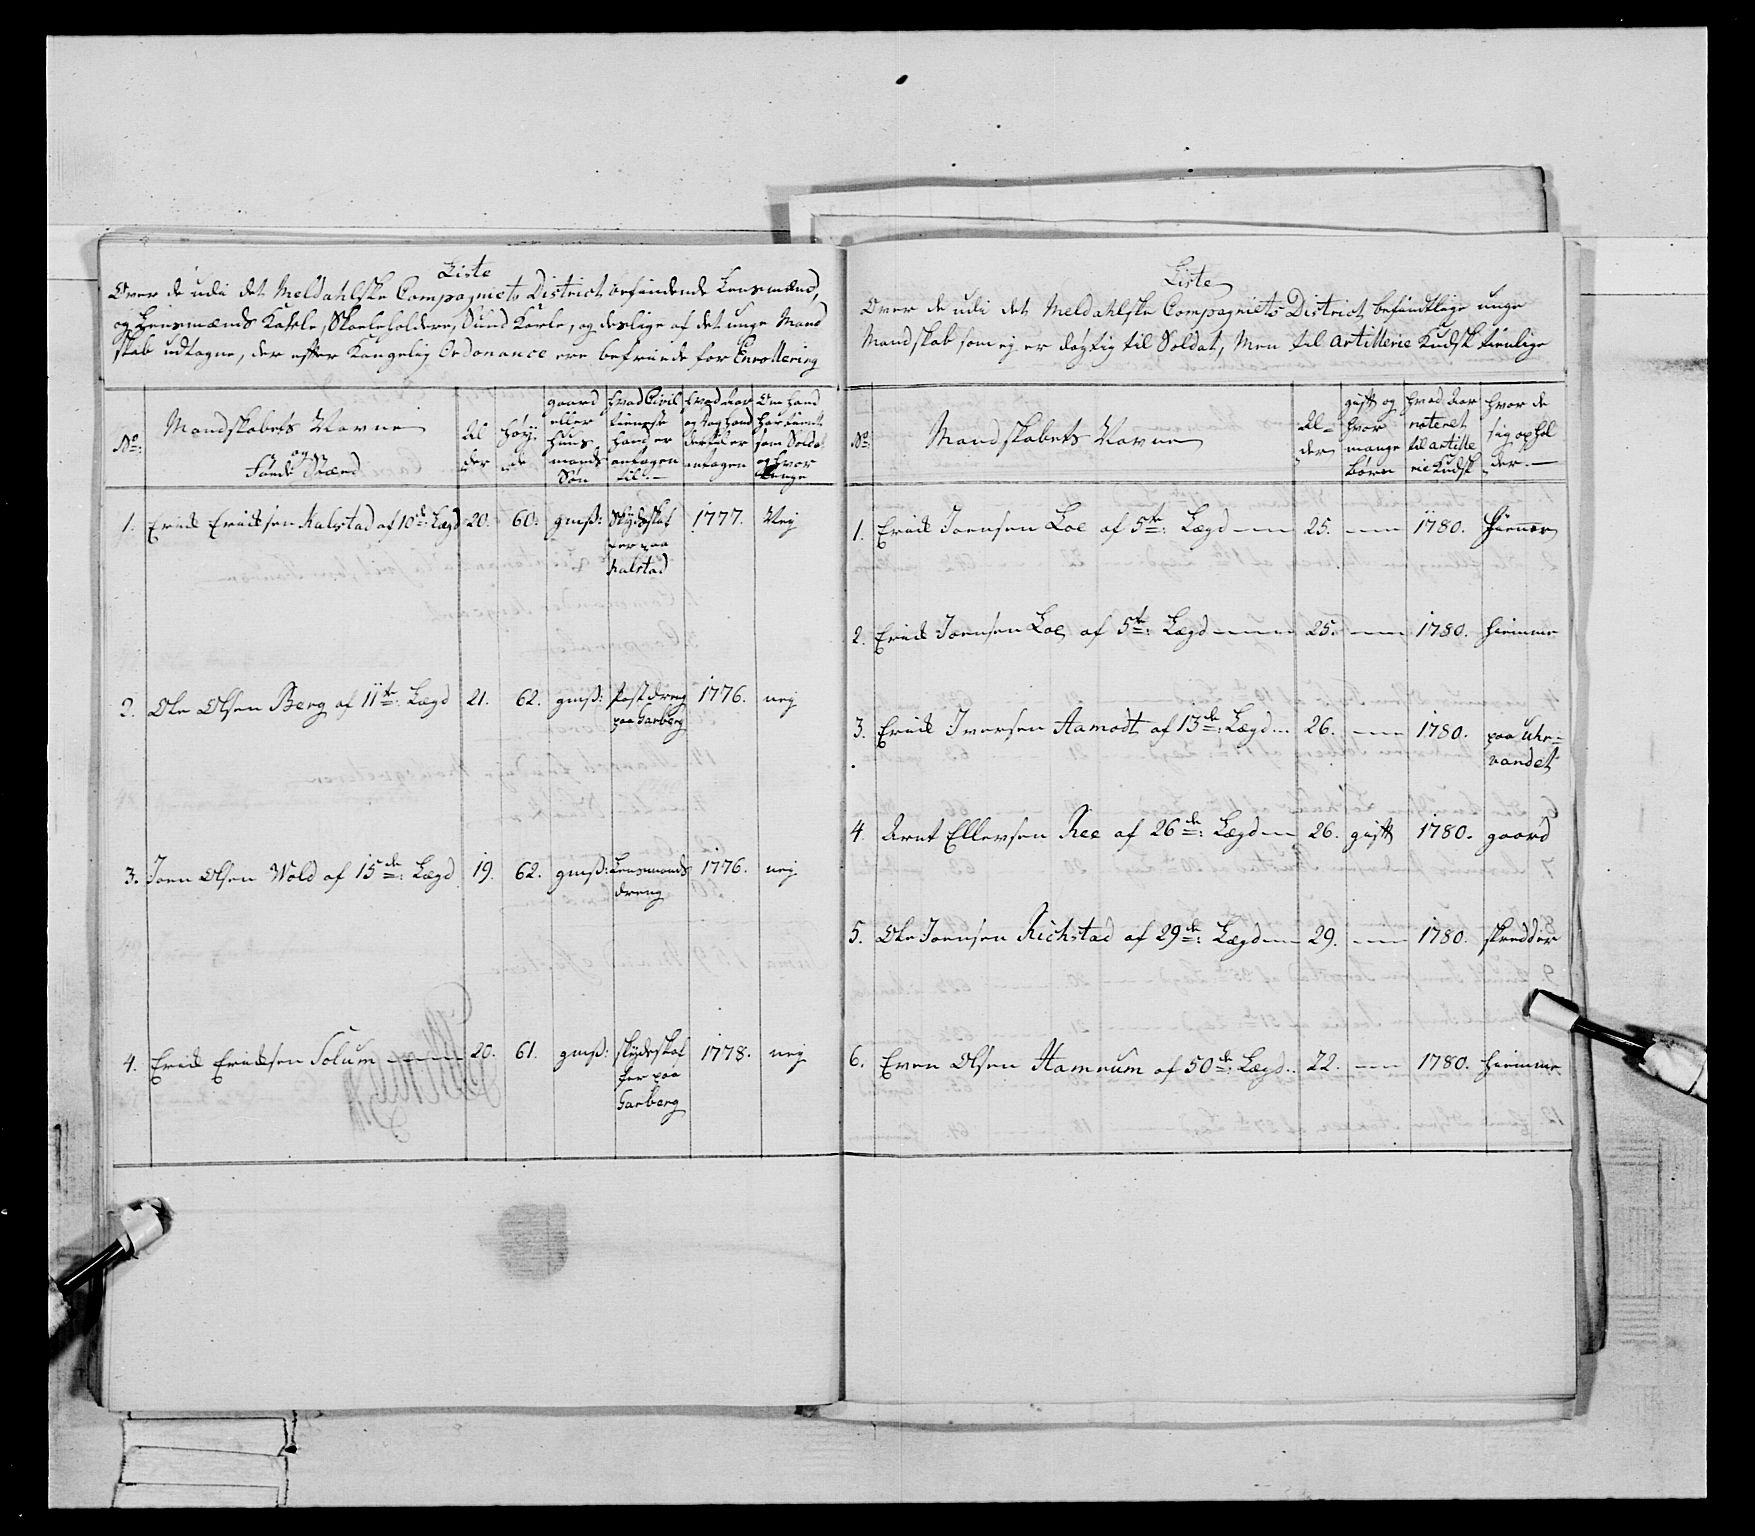 Liste
Over de udi det Meldahlske Compagniets District befindende Lensmænd,
og Lensmænds Karle, Skoeleholdere, Sund Karle, og deslige af det unge Mand
skab udtagne, der efter Kongelig Ordonance ere befriede for Enrollering
No:
Mandskabets Navne
og
Føude Stæd
Al
der
Høy
de
gaard
eller
Huus
mands
Søn
hvad Civil
tieneste
hand er
antagen
til.
hvad Aar
og Dag hand
dertil er
antagen
Om hand
har tient
som Soldat
og hvor
længe
1. Erick Ericksen Kalstad af 10de: Lægd 20. 60. gmß: Skydsskaf 1777. Nej
fer paa
Kalstad
2. Ole Olsen Berg af 11te: Lægd 21. 62. gmß: Postdreng 1776. nej
paa Garberg
3. Joen Olsen Wold af 15de: Lægd 19. 62. gmß: Lensmands 1776. nej
dreng
4. Erick Ericksen Solum 20. 61. gmß: skydsskaf 1778. nej
fer paa
Garberg
Liste
Over de udi det Meldahlske Compagniets District befindtlige unge
Mandskab som ej er dögtig til Soldat, Men til Artillerie Kudsk tienlige
No
Mandskabets Navne
Al=
der
gift og
hvor
mange
börn
hvad Aar
noteret
til artille
rie Kudsk
hvor de
sig ophol
der
1. Erick Joensen Loe af 5te: Lægd 25. 1780. hiemme
2. Erick Joensen Loe af 5te: Lægd 25. 1780. hiemme
3. Erick Iversen Aamodt af 13de: Lægd 26. 1780. paa Uhr=
vandet
4. Arnt Ellevsen Ree af 26de: Lægd 26. gift 1780. gaard
5. Ole Joensen Richstad af 29de: Lægd 29. 1780. skredder
6. Even Olsen Hamnum af 50de: Lægd 22. 1780. hiemme